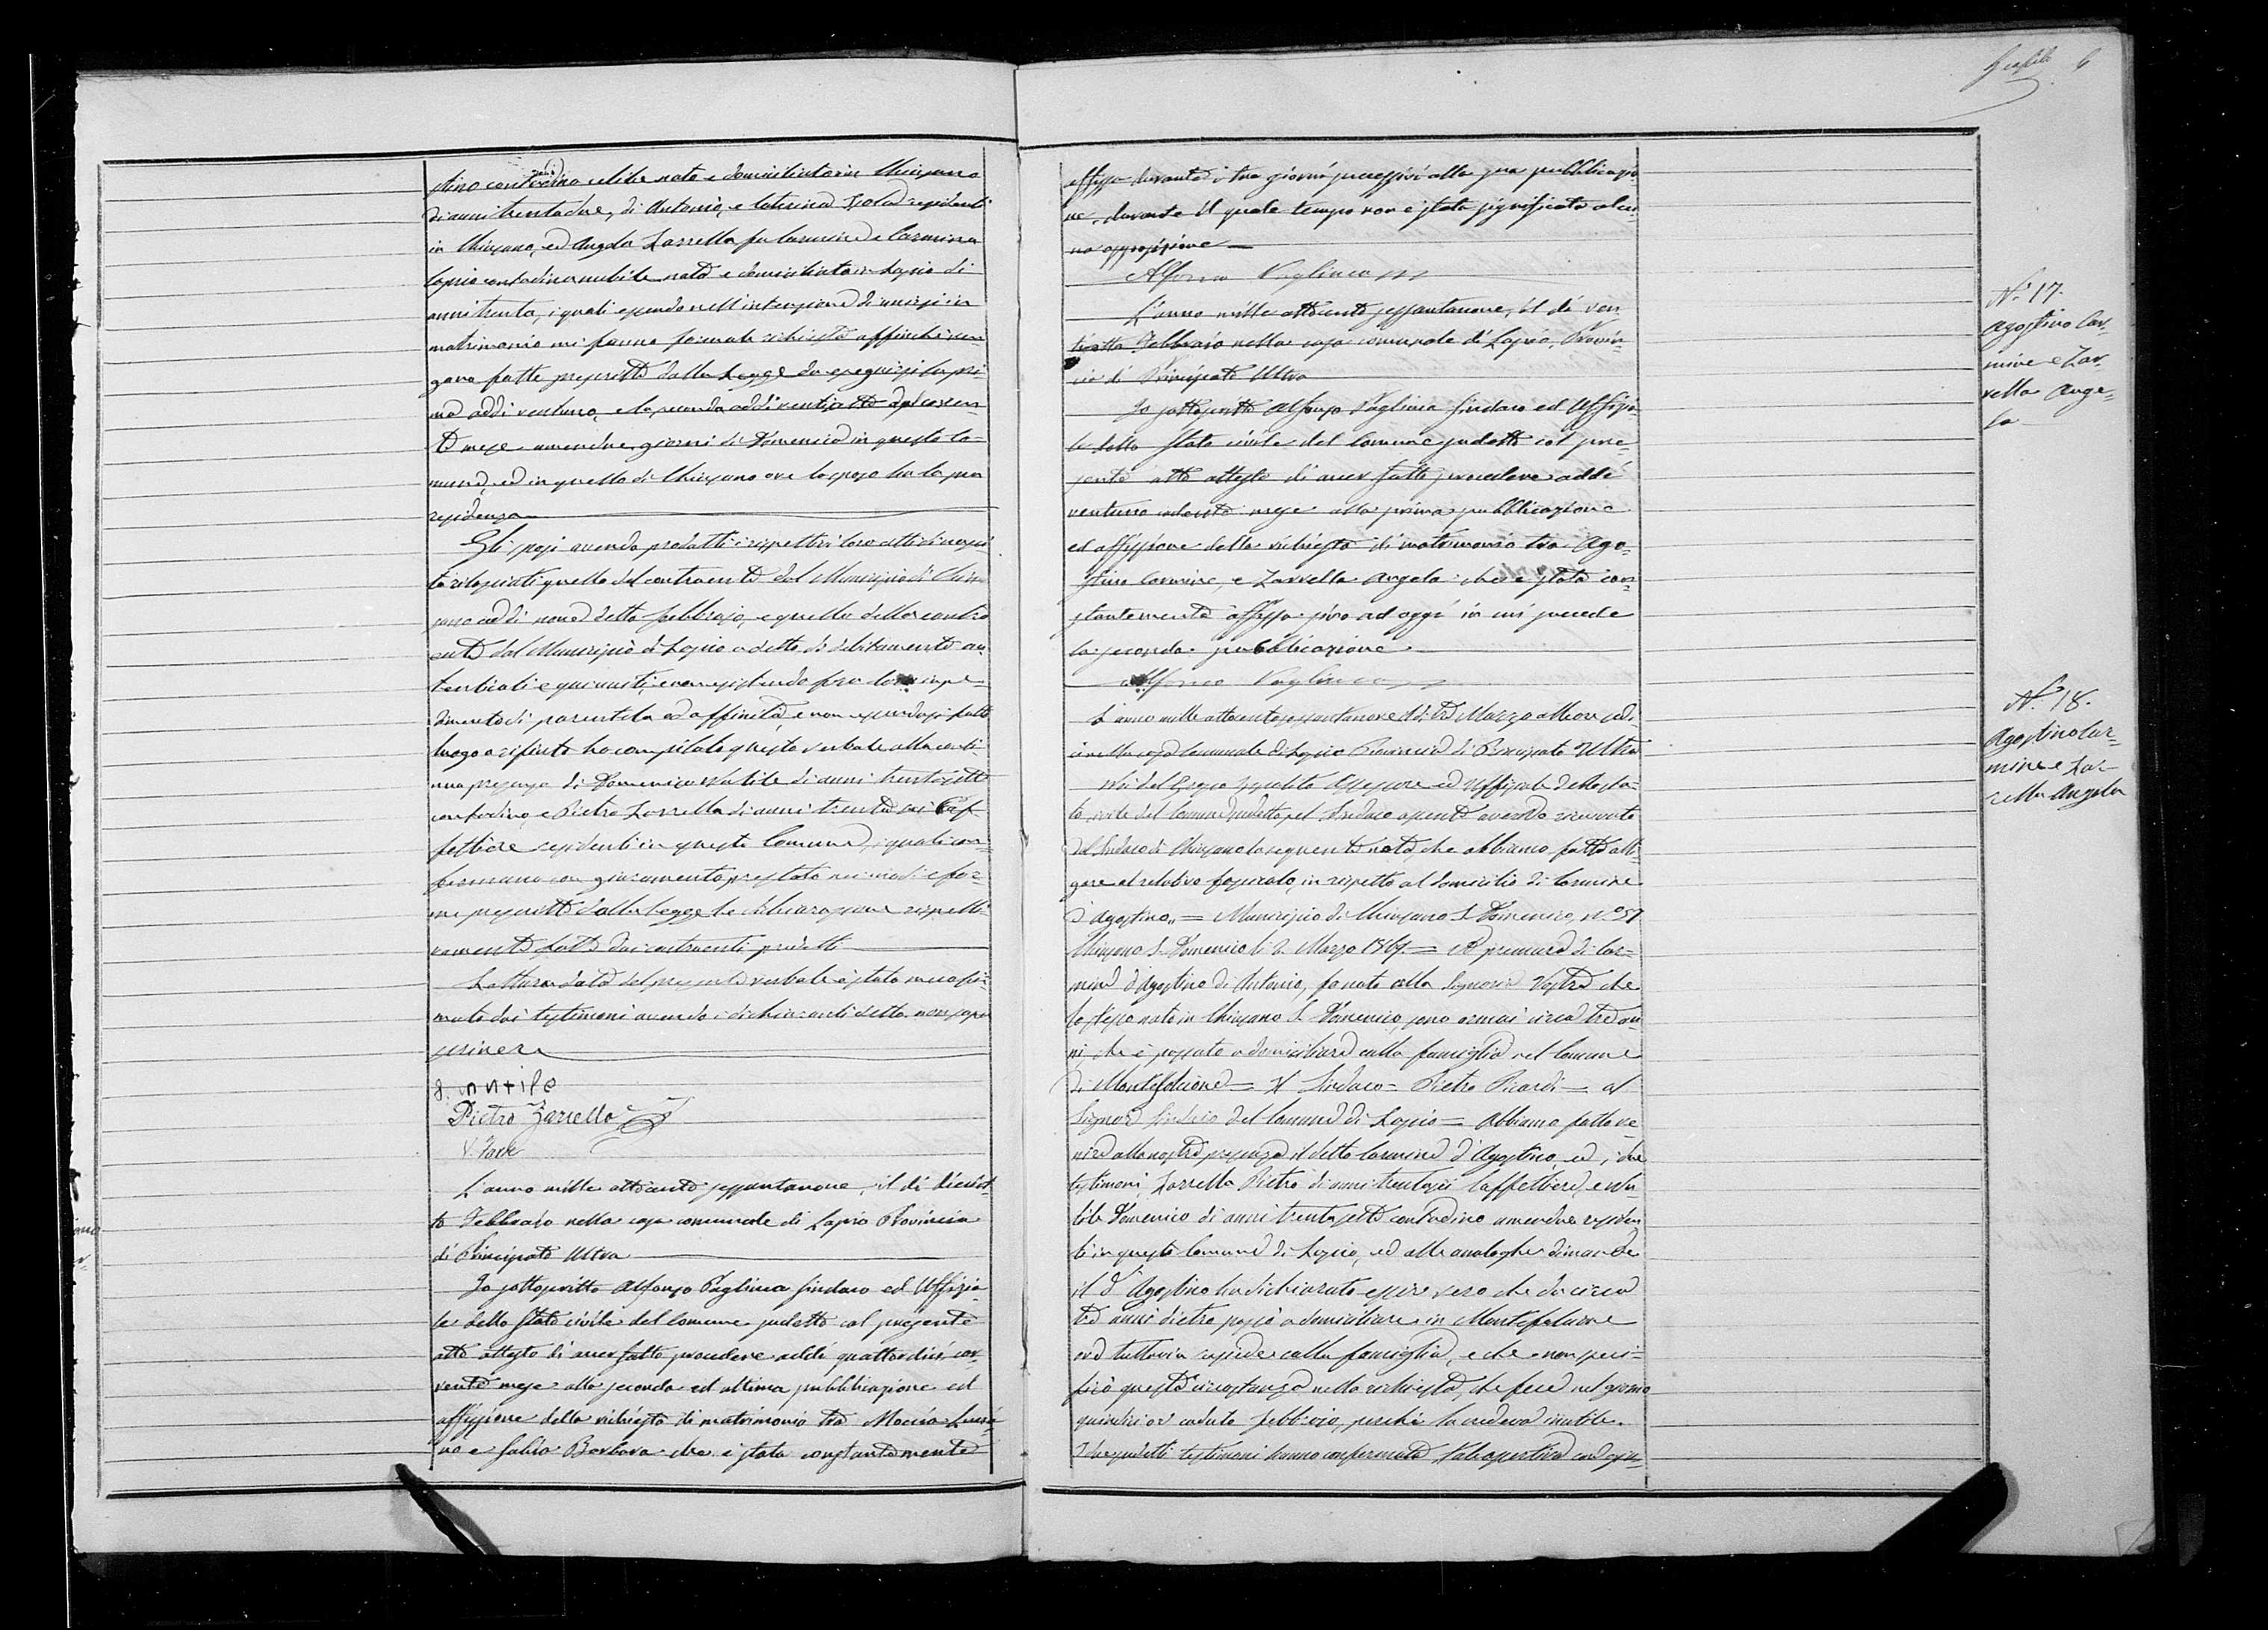 stino contadino celibe nato e domiciliato in Chiusano
di anni trentadue, di Antonio, e Caterina residenti
in Chiusano, ed Angela Zarrella fu Carmine e Carmina
Lapio contadina nubile nata e domiciliata in Lapio di
anni trenta, i quali essendo nell'intenzione di unirsi in
matrimonio mi fanno formale richiesta affinchè ven¬
gano fatte prescritte dalla Legge da eseguirsi la pri¬
ma addì ventuno, e la seconda addì ventiotto del corren¬
te mese amendue giorni di Domenica in questo Co¬
mune, ed in quello di Chiusano ove lo sposo ha la sua
residenza
Gli sposi avendo prodotti i rispettivi loro atti di nasci
ta rilasciati quello del contraente dal Municipio di Chiu
sano addì nove detto febbrajo, e quello della contra
ente dal Municipio di Lapio a detto dì debitamente au
tenticati e non esistendo fra loro impe¬
dimento di parentela ed affinità, e non essendosi fatto
luogo a rifiuto ho compilato questo verbale alla conti
nua presenza di Domenico Nutile di anni trentasette
contadino, e Pietro Zarrella di anni trentasei Caf
fettiere residenti in questo Comune, i quali con¬
fermano con giuramento prestato nei modi e for¬
me prescritte dalla Legge le dichiarazioni rispetti
vamente fatte dai contraenti predetti
Lettura data del presente verbale è stato meco fir¬
mato dai testimoni avendo i dichiaranti detto non saper
scrivere
Pietro Zarrella
L'anno mille ottocento sessantanove, il dì diciot
to Febbraio nella casa comunale di Lapio Provincia
di Principato Ultra
Io sottoscritto Alfonso Pagliuca Sindaco ed Uffizia
le dello Stato civile del Comune sudetto col presente
atto attesto di aver fatto procedere addì quattordici cor¬
rente mese alla seconda ed ultima pubblicazione ed
affissione della richiesta di matrimonio tra
no e Barbara che è stata constantemente
affissa durante i tre giorni successivi alla sua pubblicazio
ne, durante il quale tempo non è stata significata alcu¬
na opposizione
Alfonso Pagliuca
N.º 17.
Agostino Car¬
mine e Zar¬
rella Ange¬
la
L'anno mille ottocento sessantanove, il dì ven
tiotto Febbraio nella casa comunale di Lapio, Provin¬
cia di Principato Ultra
Io sottoscritto Alfonso Pagliuca Sindaco ed Uffizia¬
le dello Stato civile del Comune sudetto col pre¬
sente atto attesto di aver fatto procedere addì
ventuno cadente mese alla prima pubblicazione
ed affissione della richiesta di matrimonio tra Ago¬
stino Carmine, e Zarrella Angela che è stata con¬
stantemente affissa sino ad oggi in cui succede
la seconda pubblicazione.
Alfonso Pagliuca
N.º 18.
Agostino Car¬
mine e Zar¬
rella Angela
L'anno mille ottocento sessantanove il dì tre Marzo alle ore
nella casa Comunale di Lapio Provincia di Principato Ultra
Noi Ippolito Assessore ed Uffiziale dello sta¬
to civile del Comune sudetto, pel Sindaco assente avendo ricevuto
dal Sindaco di Chiusano la seguente nota, che abbiamo fatto alli¬
gare al relativo fascicolo, in rispetto al domicilio di Carmine
d'Agostino „ = Municipio di Chiusano S. Domenico, N.º 57
Chiusano S. Domenico li 2 Marzo 1869. = A premura di Car¬
mine d'Agostino di Antonio, fo noto alla Signoria Vostra che
lo stesso nato in Chiusano S. Domenico, sono ormai circa tre an
ni che è passato a domiciliare colla famiglia nel Comune
di Montefalcione = Il Sindaco = Pietro Picardi = Al
Signor Sindaco del Comune di Lapio = Abbiamo fatto ve¬
nire alla nostra presenza il detto Carmine d'Agostino, ed i due
testimoni, Zarrella Pietro di anni trentasei Caffettiere, e Nu
tile Domenico di anni trentasette contadino amendue residen
ti in questo Comune di Lapio, ed alle analoghe dimande
il d'Agostino ha dichiarato essere vero che da circa
tre anni dietro passò a domiciliare in Montefalcione
ove tuttavia risiede colla famiglia, e che non speci¬
ficò questa circostanza nella richiesta, che fece nel giorno
quindici or caduto febbraio, perchè la credeva inutile.
I due sudetti testimoni hanno confermato tale assertiva con giu¬